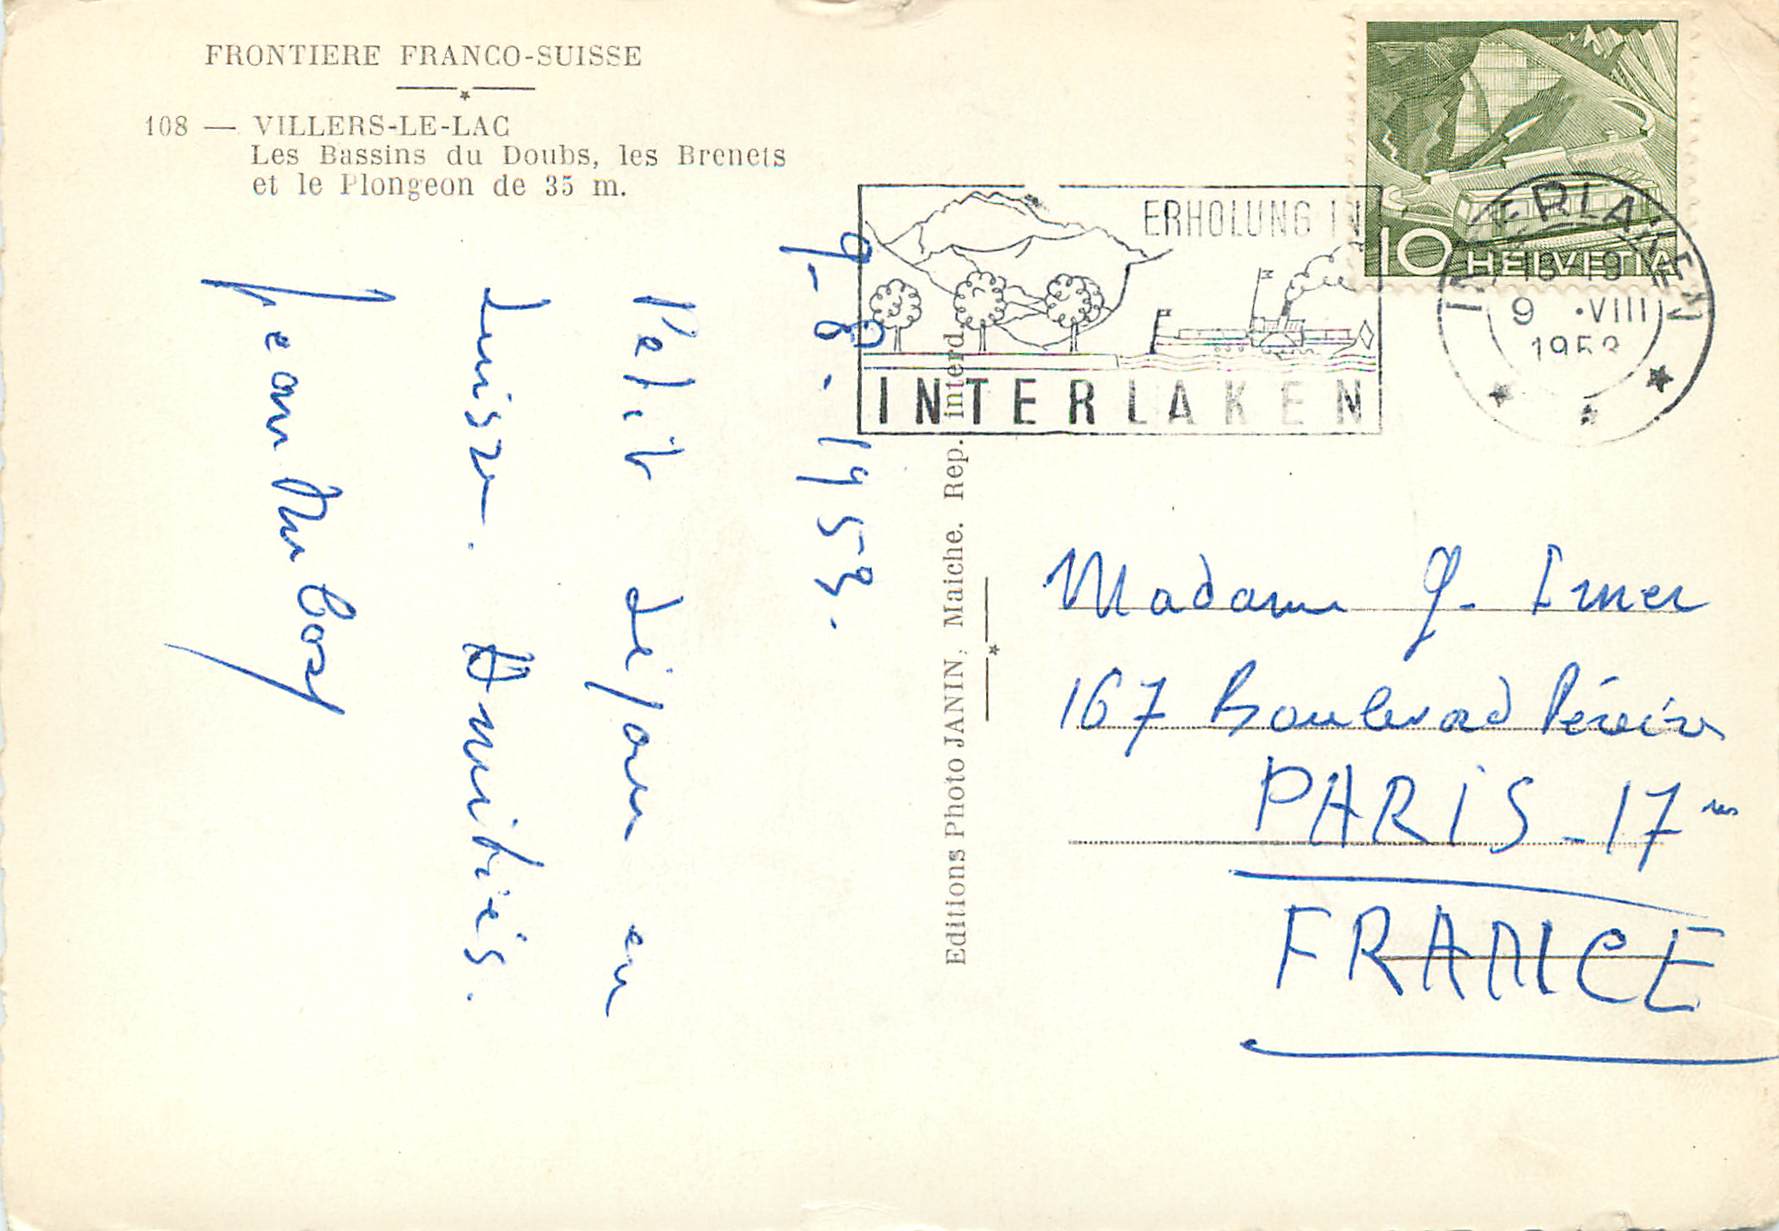 FRONTIERE FRANCO-SUISSE
108 — VILLERS-LE-LAC
Les Bassins du Doubs, les Brenets
et le Plongeon de 35 m.
9-8-1953.
Petit séjour en
Suisse. Amitiés.
Jean
Editions Photo JANIN, Maiche. Rep. interd.
ERHOLUNG IN
INTERLAKEN
10 HELVETIA
INTERLAKEN
18-19
9 • VIII
1953
Madame G. Imer
167 Boulevard Péreire
PARIS - 17
FRANCE